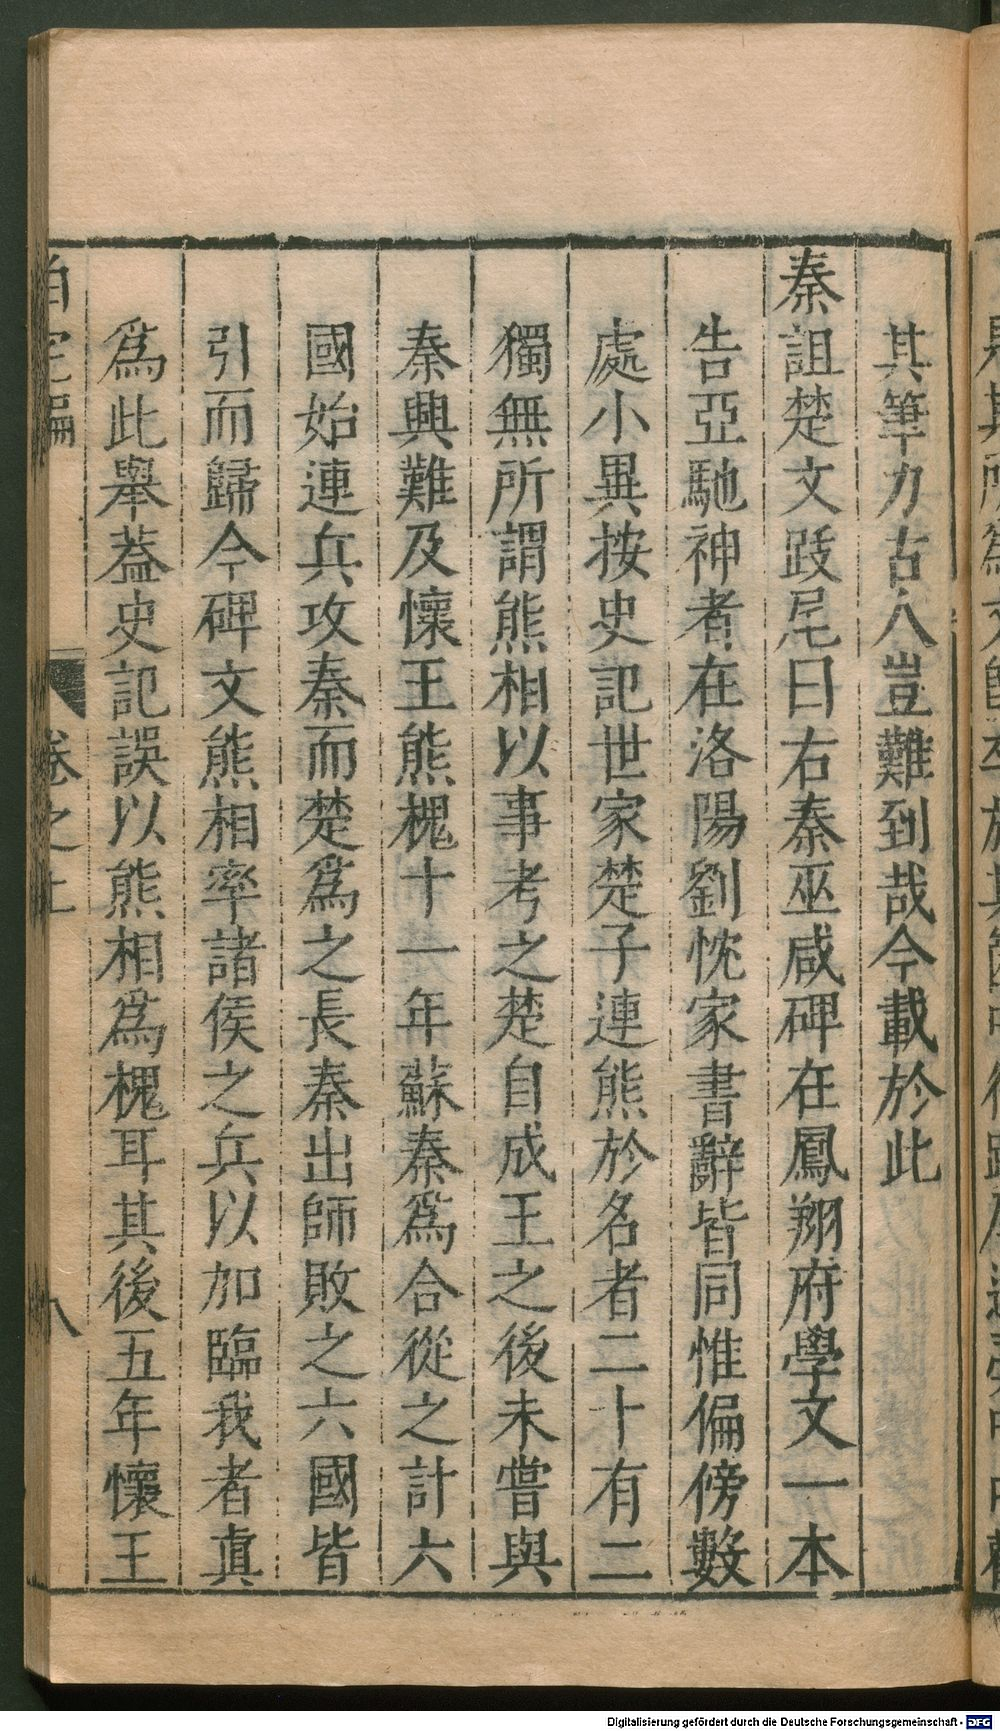 其筆力古人豈難到哉今載於此
秦詛楚文跋尾曰右秦巫咸碑在鳳翔府學文一本
告亞馳神者在洛陽劉忱家書辭皆同惟偏傍數
處小異按史記世家楚子連熊於名者二十有二
獨無所謂熊相以事考之楚自成王之後未嘗與
秦興難及懷王熊槐十一年蘇秦爲合從之計六
國始連兵攻秦而楚爲之長秦出師敗之六國皆
引而歸今碑文熊相率諸侯之兵以加臨我者真
爲此舉葢史記誤以熊相爲槐耳其後五年懷王
卷之上
八
Digitalisierung gefördert durch die Deutsche Forschungsgemeinschaft - DFG